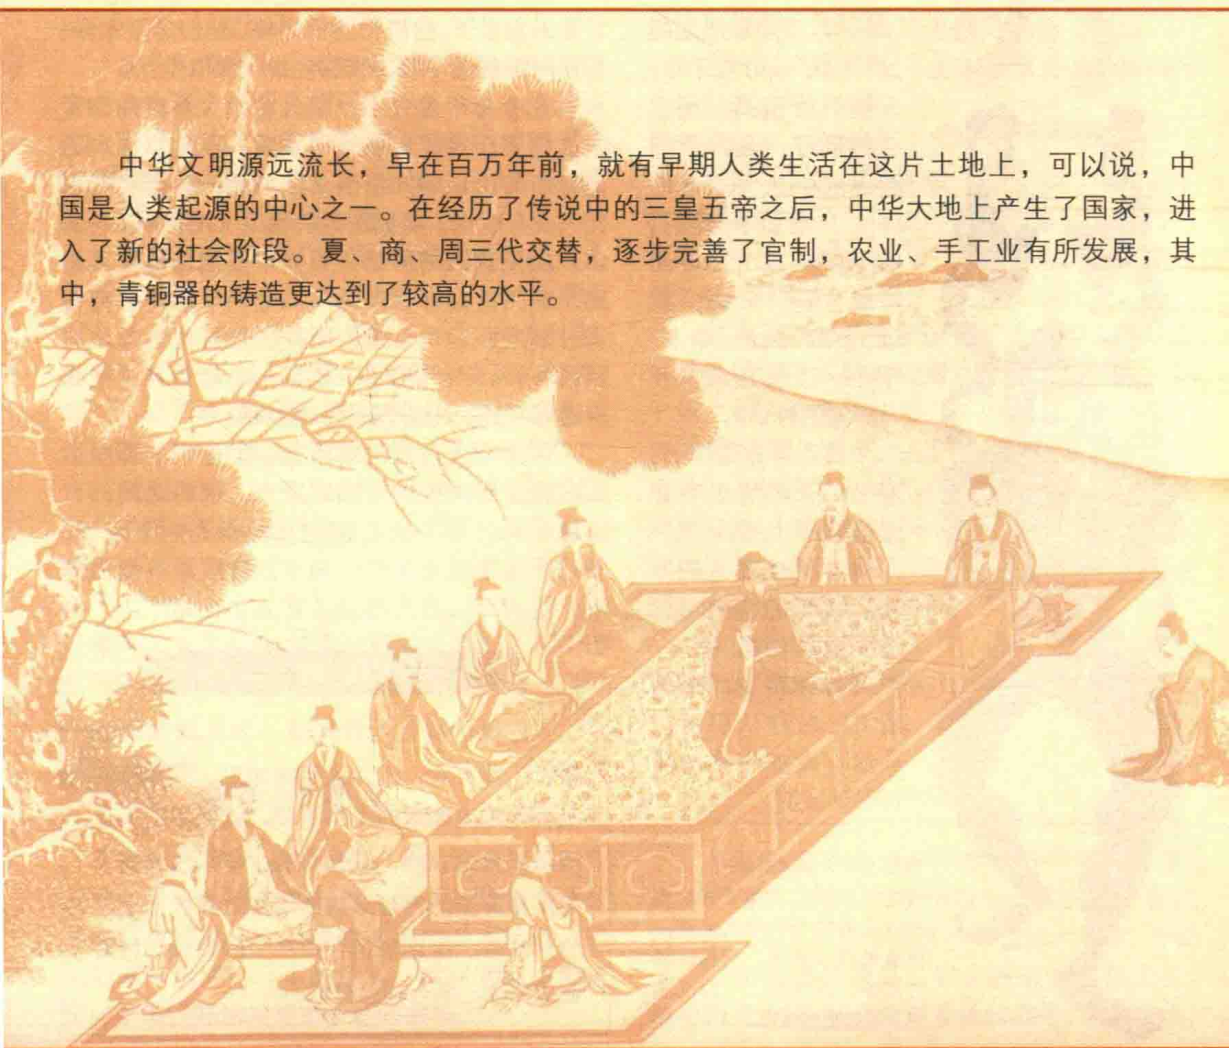 中华文明源远流长，早在百万年前，就有早期人类生活在这片土地上，可以说，中
国是人类起源的中心之一。在经历了传说中的三皇五帝之后，中华大地上产生了国家，进
入了新的社会阶段。夏、商、周三代交替，逐步完善了官制，农业、手工业有所发展，其
中，青铜器的铸造更达到了较高的水平。